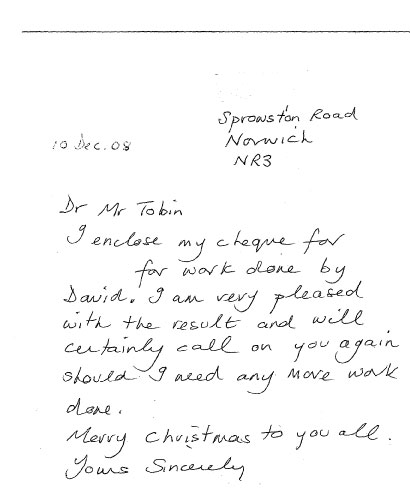 Sprowston Road
Norwich
NR3
10 Dec. 08
Dr Mr Tobin
I enclose my cheque for
for work done by
David. I am very pleased
with the result and will
certainly call on you again
should I need any more work
done.
Merry Christmas to you all.
Yours Sincerely